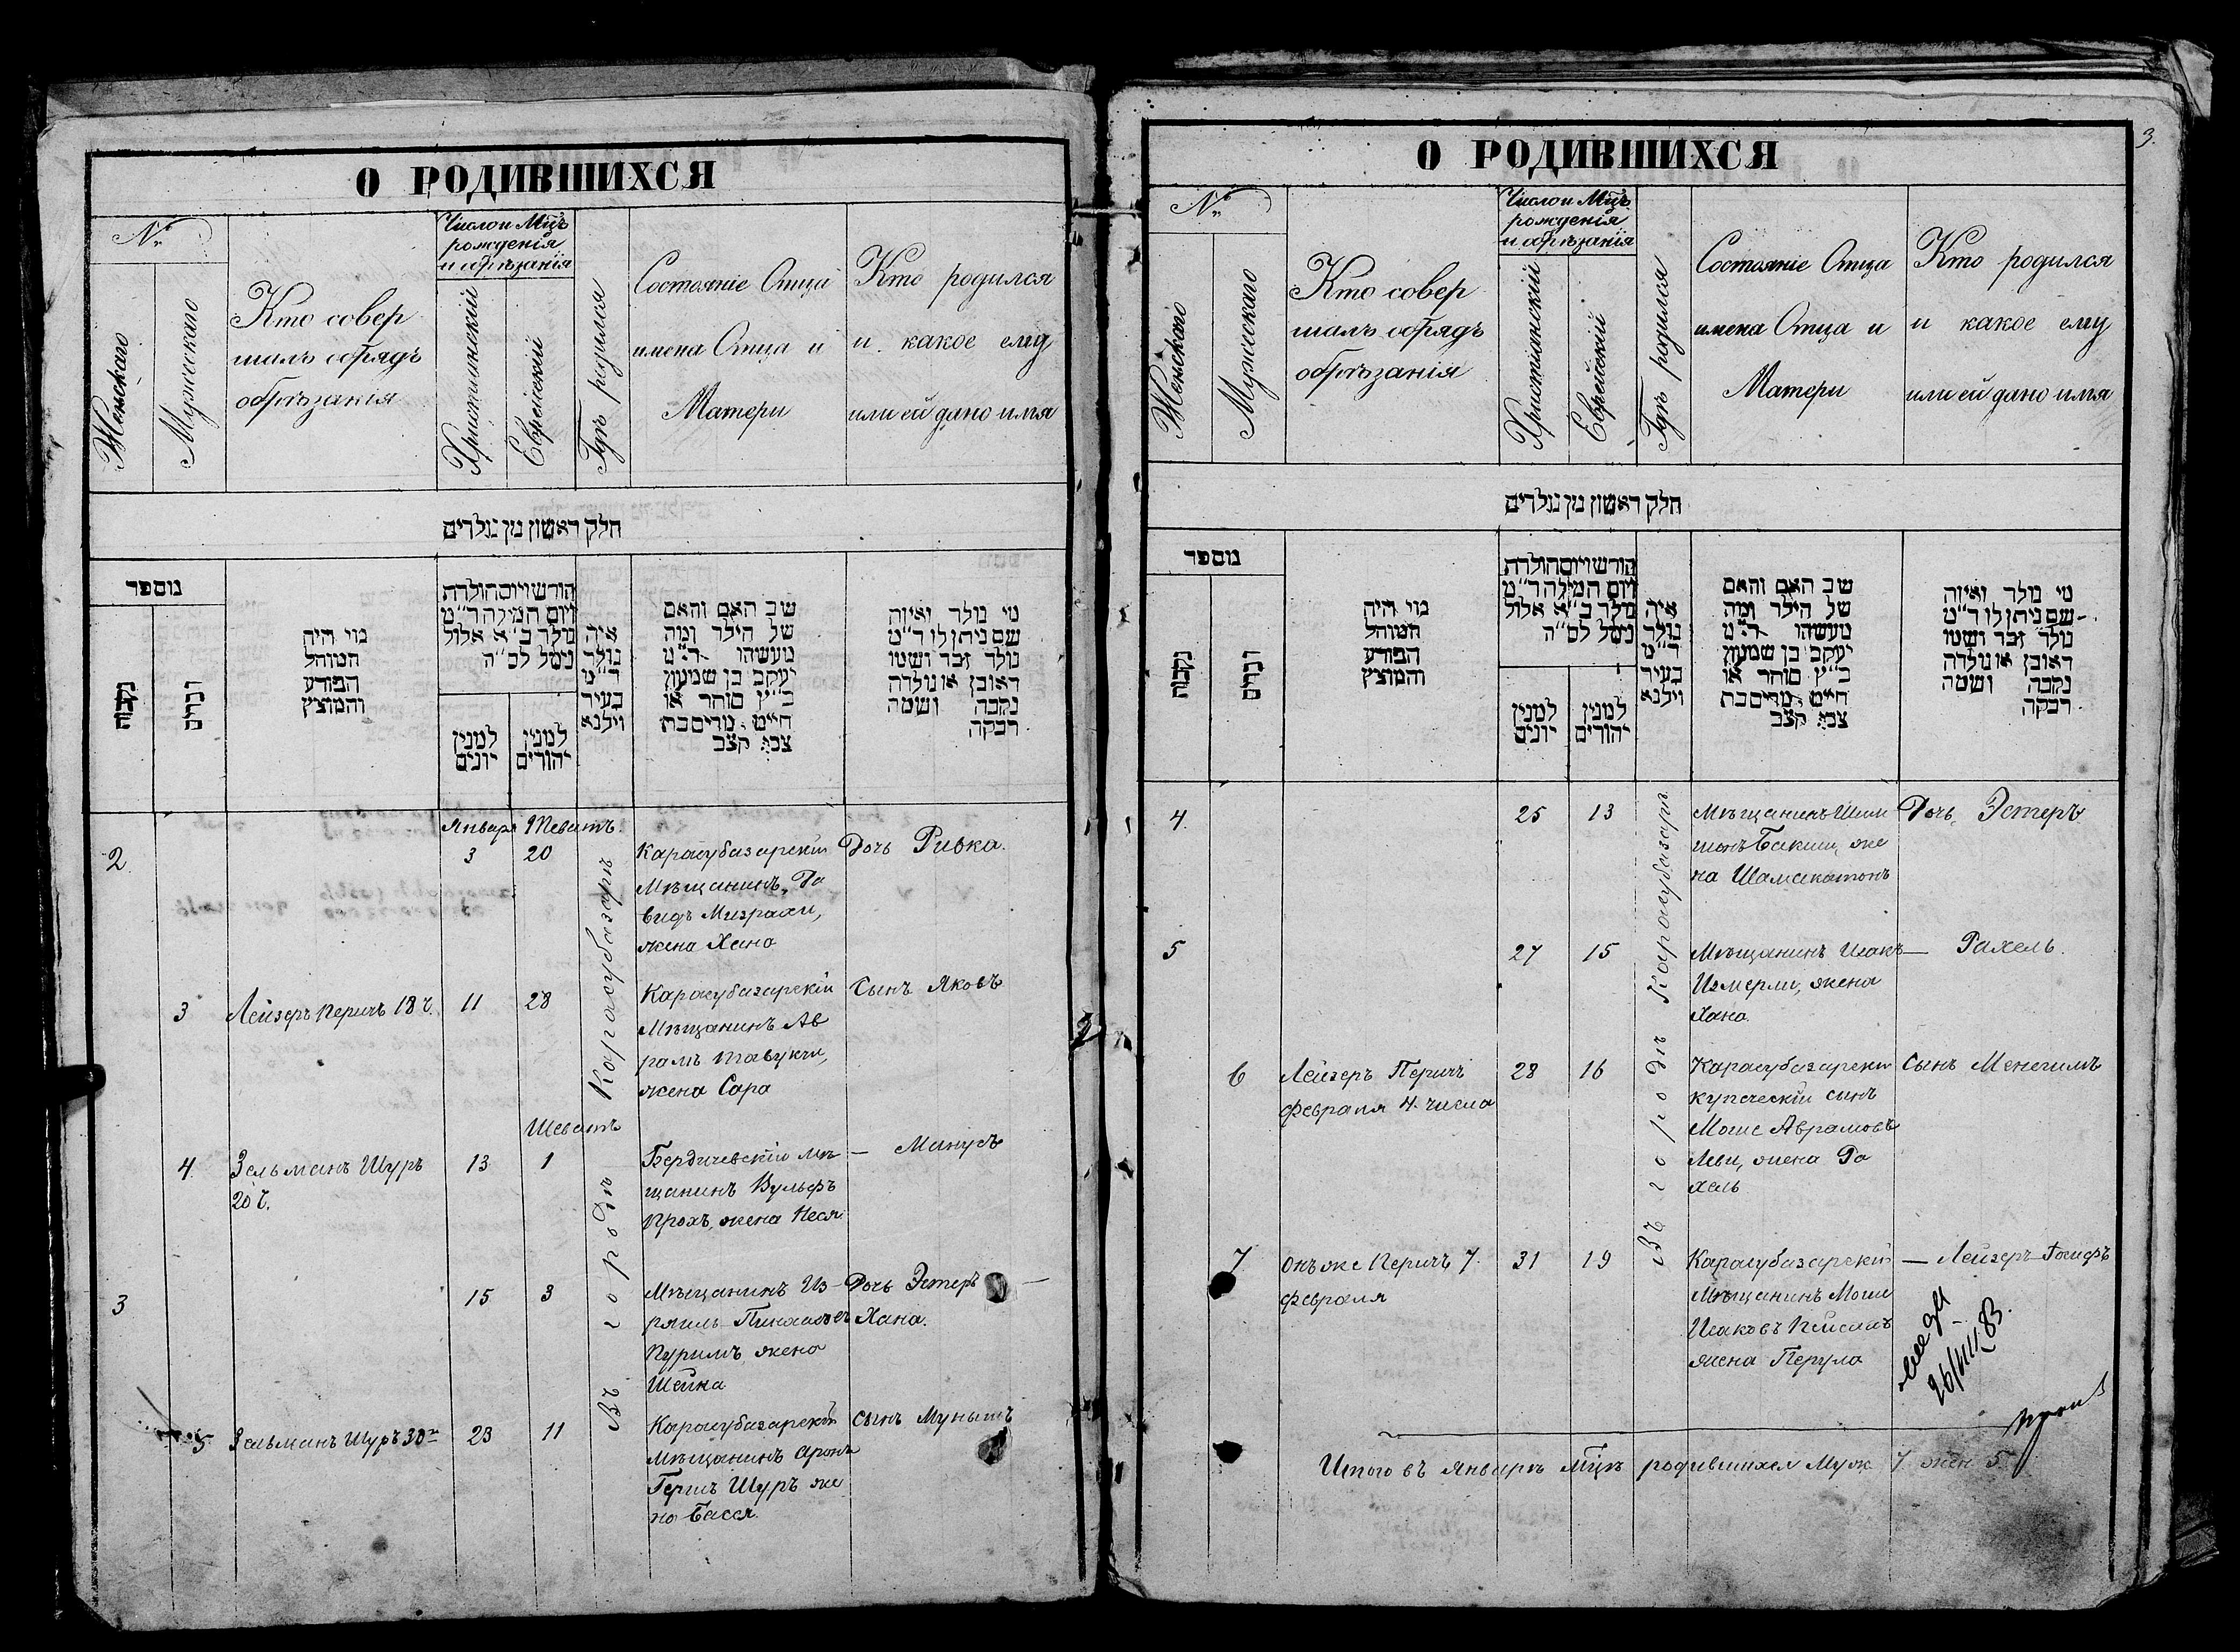 О РОДИВШИХСЯ
№
Женскаго
Мужескаго
Кто совер
шалъ обрядъ
обрѣзанія
Число и Мцъ
рожденія
и обрѣзанія
Христіянскій
Еврейскій
Гдѣ родился
Состояніе Отца
имена Отца и
Матери
Кто родился
и какое ему
или ей дано имя
חלק ראשון מן נולדים
מספר
נקבות
זכרים
מי היה
המוהל
הפורע
והמוצץ
חודש ויום הולדת
ויום המילה ד״מ
נולד ב״א אלול
נימל לס״ה
למנין
יונים
למנין
יהודים
איה
נולד
ד״מ
בעיר
וילנא
שב האם והאם
של הילד ומה
מעשהו ד״מ
יעקב בן שמעון
כ״ץ סוחר או
חיים מרים בת
צבי קצב
מי נולד ואיזה
שם ניתן לו ד״מ
נולד זכר ושמו
ראובן או נולדה
נקבה ושמה
רבקה
Января Теватъ.
Въ городѣ Карасубазарѣ
2. 3 20 Карасубазарскій Дочь Ривка.
Мѣщанинъ, Да
видъ Мизрахи,
жена Хана
3 Лейзеръ Перичъ 18 ч. 11 28 Карасубазарскій Сынъ Яковъ
Мѣщанинъ Ав
рамъ Тавукчи,
жена Сара
Шеватъ
4. Зельманъ Шуръ 13 1 Бердичевскій мѣ — Манусъ
20 ч. щанинъ Вульфъ
Прохъ, жена Песя
3 15 3 Мѣщанинъ Из- Дочь Эстеръ —
раиль Пинхасовъ Хана.
Пуримъ жена
Шейна
5 Зельманъ Шуръ 30 23 11 Карасубазарскій Сынъ Мунышъ
Мѣщанинъ Аронъ
Гершъ Шуръ же
на Бася.
3.
О РОДИВШИХСЯ
№
Женскаго
Мужескаго
Кто совер
шалъ обрядъ
обрѣзанія
Число и Мцъ
рожденія
и обрѣзанія
Христіянскій
Еврейскій
Гдѣ родился
Состояніе Отца
имена Отца и
Матери
Кто родился
и какое ему
или ей дано имя
חלק ראשון מן נולדים
מספר
נקבות
זכרים
מי היה
המוהל
הפורע
והמוצץ
חודש ויום הולדת
ויום המילה ד״מ
נולד ב״א אלול
נימל לס״ה
למנין
יונים
למנין
יהודים
איה
נולד
ד״מ
בעיר
וילנא
שב האם והאם
של הילד ומה
מעשהו ד״מ
יעקב בן שמעון
כ״ץ סוחר או
חיים מרים בת
צבי קצב
מי נולד ואיזה
שם ניתן לו ד״מ
נולד זכר ושמו
ראובן או נולדה
נקבה ושמה
רבקה
Въ городѣ Карасубазарѣ
4. 25 13 Мѣщанинъ Шим Дочь, Эстеръ
шонъ Бакши, же
на Шамакатонъ
5 27 15 Мѣщанинъ Исакъ — Рахель.
Измерли, жена
Хана.
6 Лейзеръ Перичъ 28 16 Карасубазарскій Сынъ Менегимъ
февраля 4. числа купеческій сынъ
Моше Аврамовъ
Леви, жена Ра
хель
7 онъ же Перичъ 7. 31 19 Карасубазарскій — Лейзеръ-Іосифъ
февраля Мѣщанинъ Моше
Исаковъ Пейсахъ
жена Перула
Итого въ Январѣ Мцѣ родившихся Муж. 7 жен 5